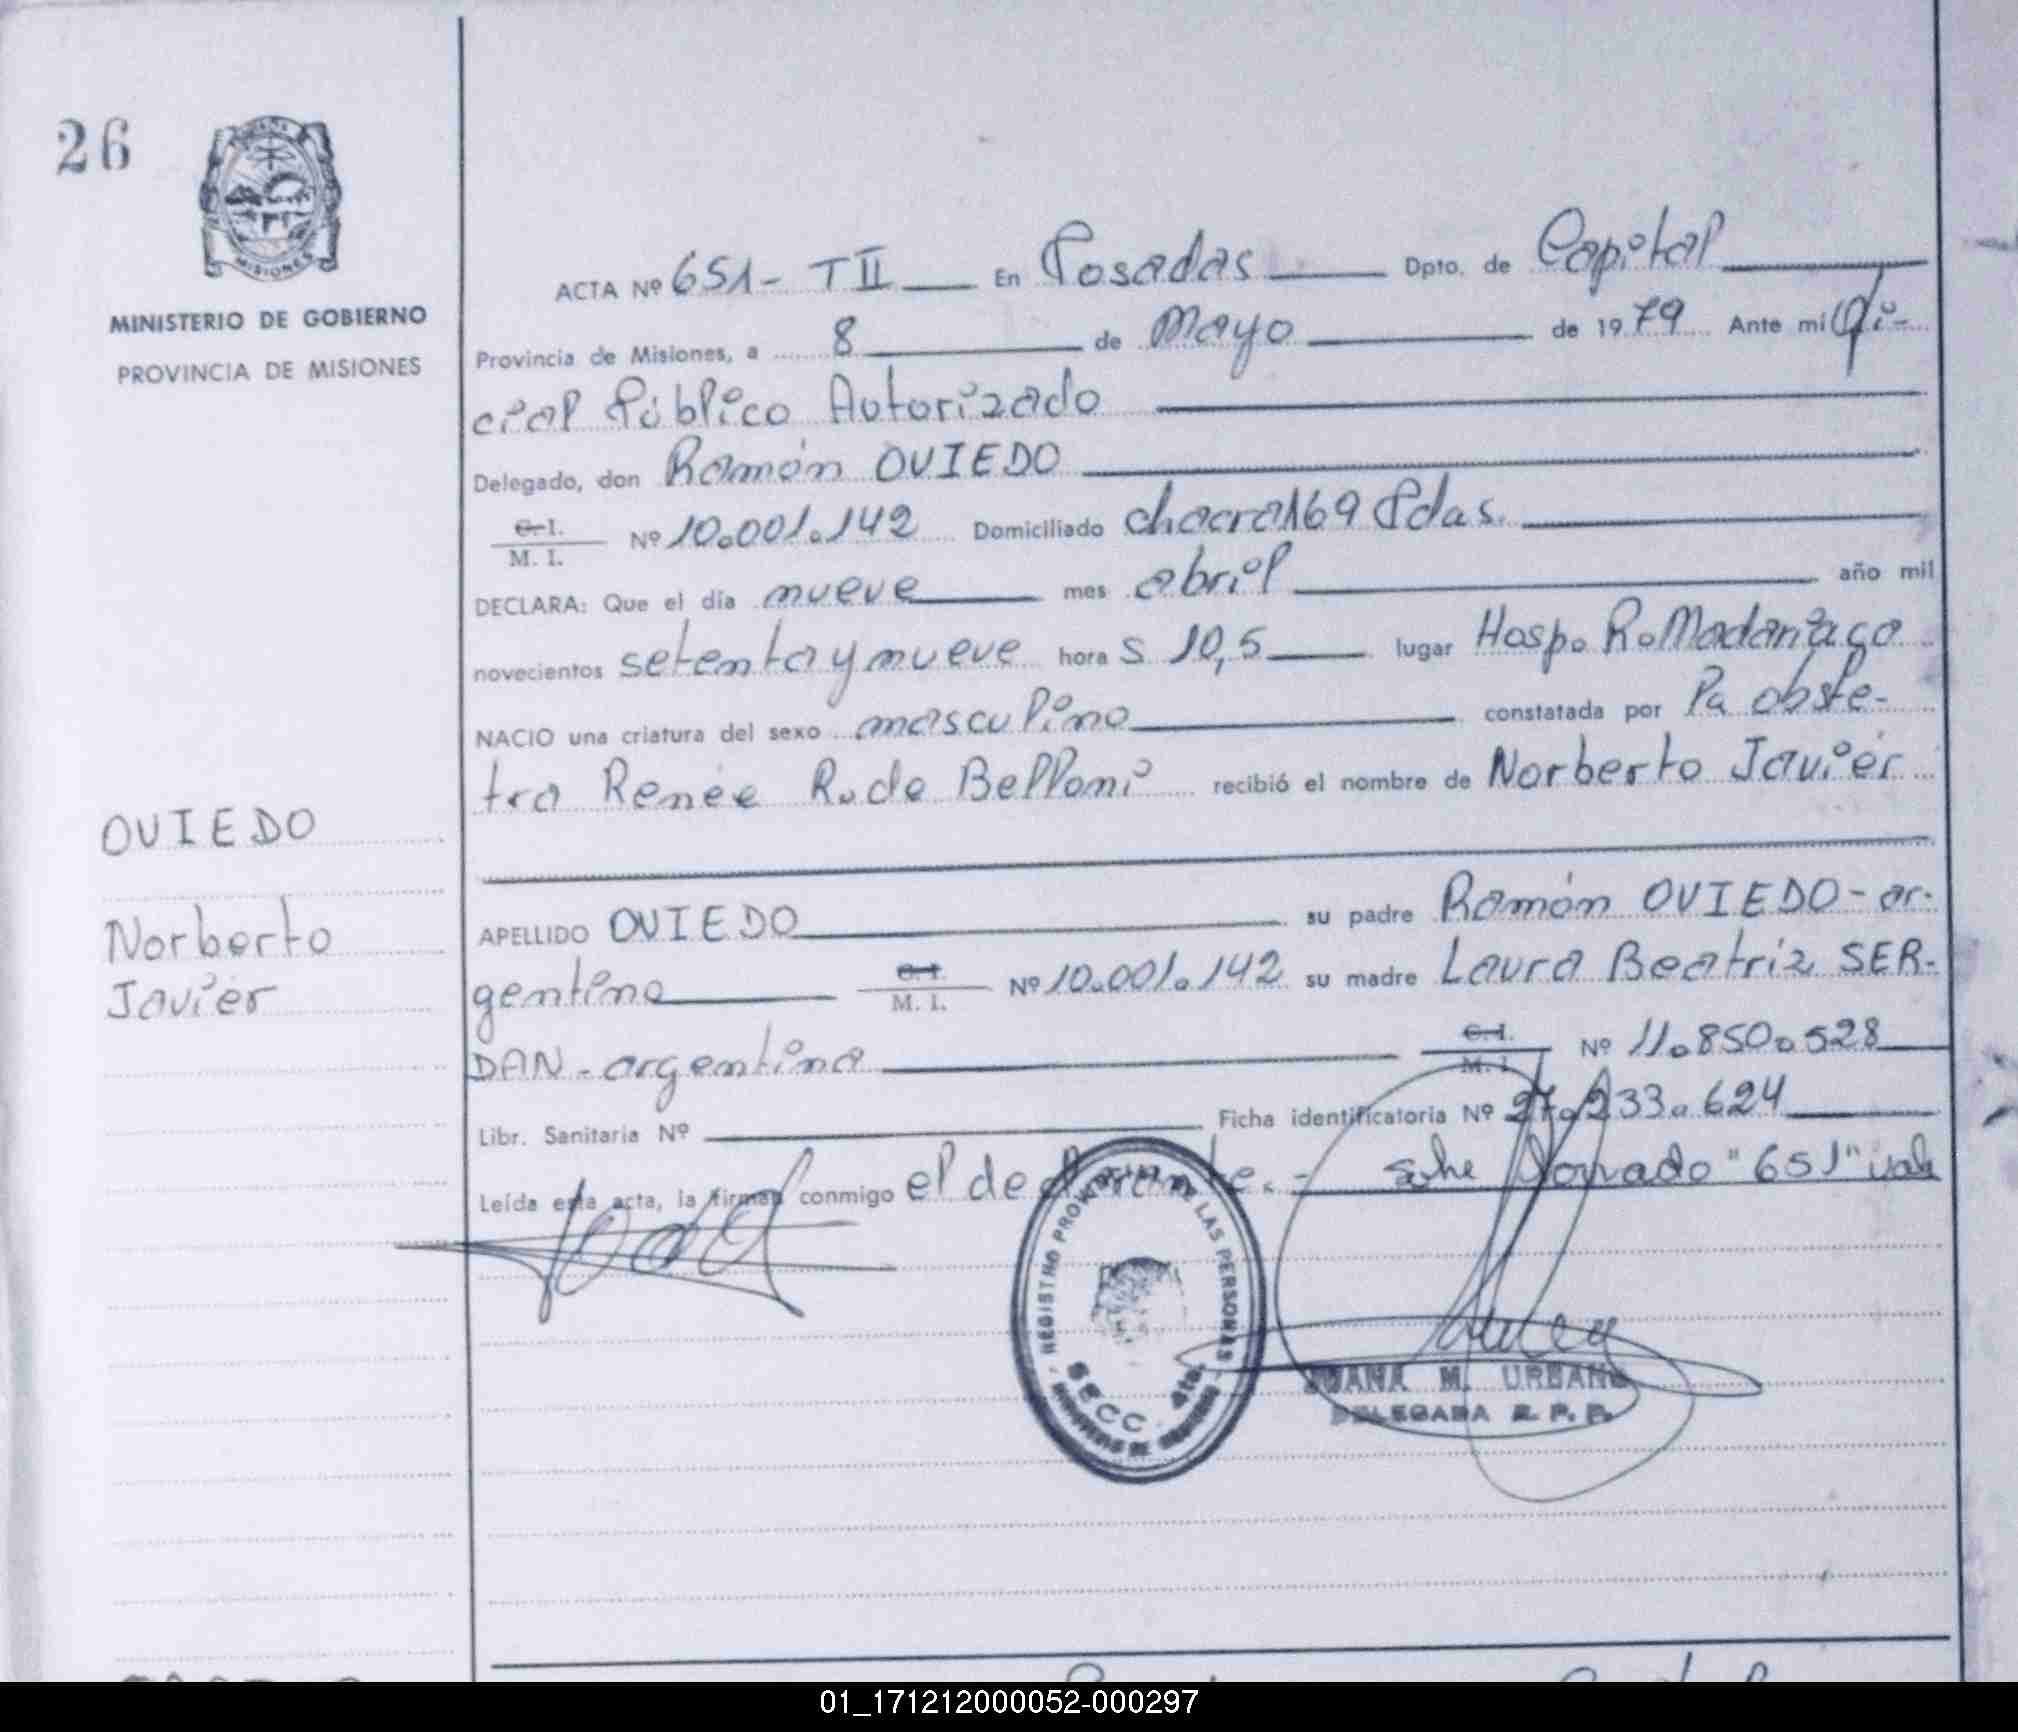 26
MISIONES
MINISTERIO DE GOBIERNO
PROVINCIA DE MISIONES
ACTA Nº 651- TII En Posadas Dpto. de Capital
Provincia de Misiones, a 8 de Mayo de 1979 Ante mí Ofi-
cial Público Autorizado
Delegado, don Ramón OVIEDO
C. I.
M. I. Nº 10.001.142 Domiciliado chacra 169 Pdas.
DECLARA: Que el día nueve mes abril año mil
novecientos setenta y nueve hora s 10,5 lugar Hosp. R. Madariaga
NACIO una criatura del sexo masculino constatada por la obste-
tra Renée R. de Belloni recibió el nombre de Norberto Javier
OVIEDO
Norberto
Javier
APELLIDO OVIEDO su padre Ramón OVIEDO - ar-
gentino C. I.
M. I. Nº 10.001.142 su madre Laura Beatriz SER-
DAN - argentina C. I.
M. I. Nº 11.850.528
Libr. Sanitaria Nº Ficha identificatoria Nº 27.233.624
Leída esta acta, la firman conmigo el declarante. - sobre borrado "651" vale
REGISTRO PROVINCIAL DE LAS PERSONAS
SECC. 4ta.
JUANA M. URBANO
DELEGADA R. P. P.
01_171212000052-000297